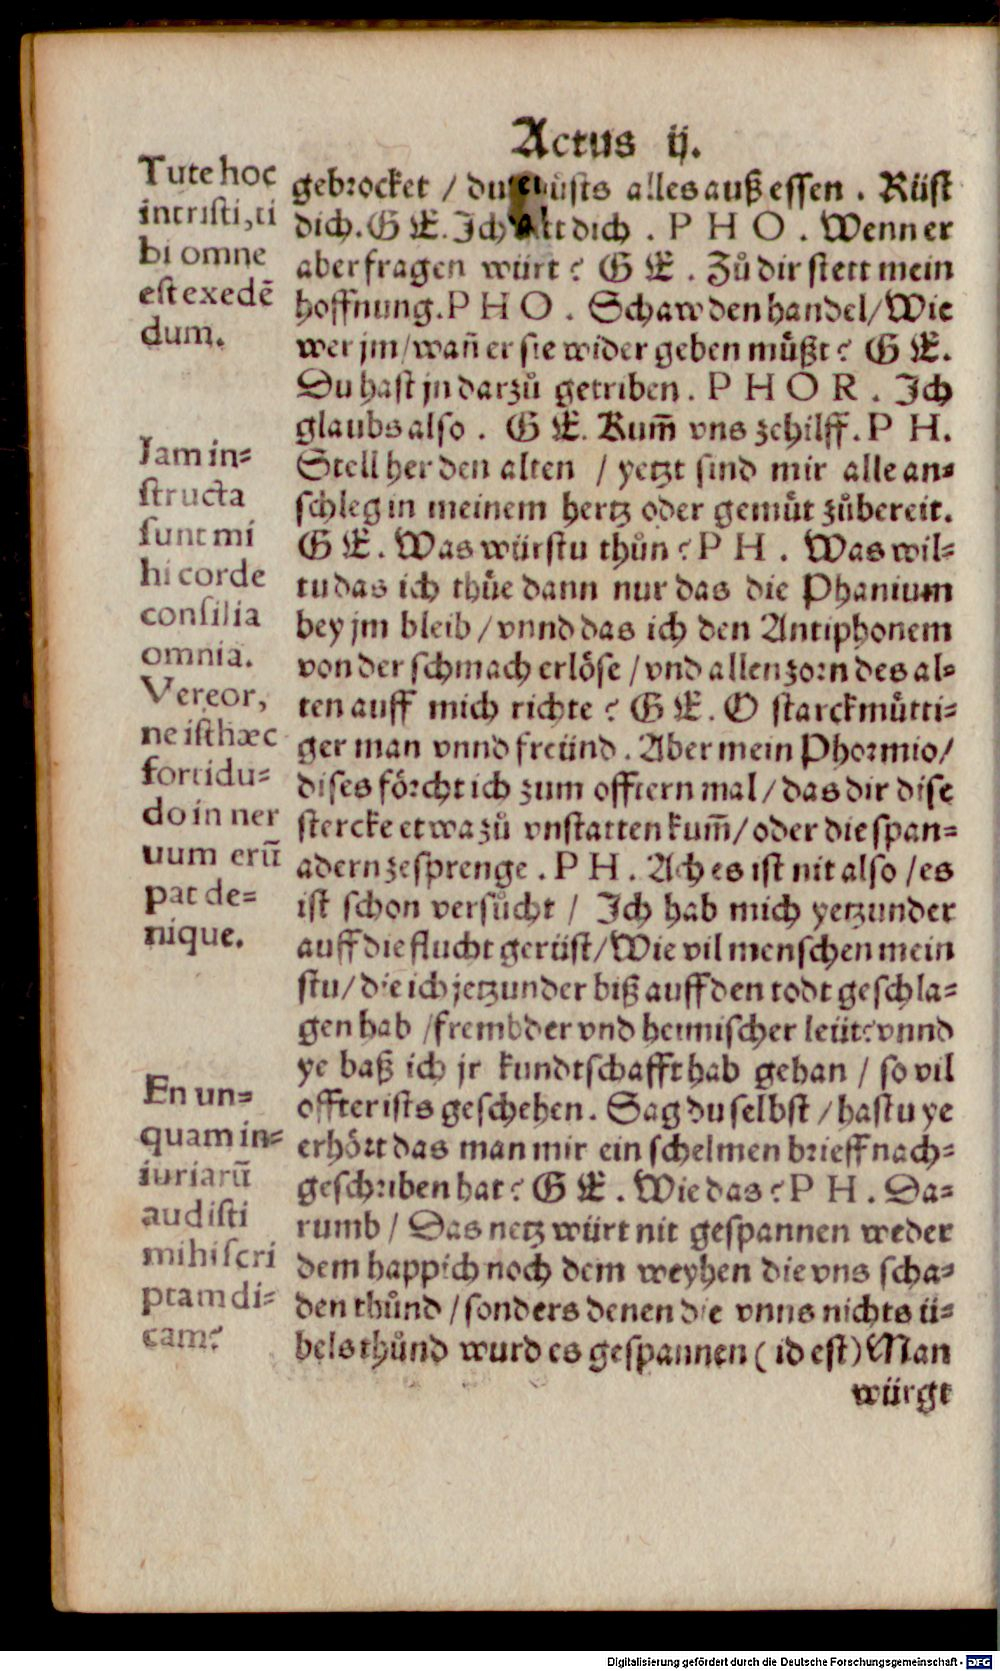 Actus ij.
Tute hoc
intristi, ti
bi omne
est exedē
dum.
Iam in-
structa
sunt mi
hi corde
consilia
omnia.
Vereor,
ne isthæc
fortidu-
do in ner
uum erū
pat de-
nique.
En un-
quam in-
iuriarū
audisti
mihi scri
ptam di-
cam?
gebrocket / du můsts alles auß essen . Rüst
dich. G E. Ich dich . P H O . Wenn er
aber fragen würt? G E . Zů dir stett mein
hoffnung. P H O . Schaw den handel / Wie
wer jm / wañ er sie wider geben müßt? G E.
Du hast jn darzů getriben. P H O R . Ich
glaubs also . G E. Kum̃ vns zehilff. P H.
Stell her den alten / yetzt sind mir alle an-
schleg in meinem hertz oder gemůt zůbereit.
G E. Was würstu thůn? P H . Was wil-
tu das ich thüe dann nur das die Phanium
bey jm bleib / vnnd das ich den Antiphonem
von der schmach erlöse / vnd allen zorn des al-
ten auff mich richte? G E. O starckmůtti-
ger man vnnd freünd . Aber mein Phormio /
dises förcht ich zum offtern mal / das dir dise
stercke etwa zů vnstatten kum̃ / oder die span-
adern zesprenge . P H . Ach es ist nit also / es
ist schon versůcht / Ich hab mich yetzunder
auff die flucht gerüst / Wie vil menschen mein
stu / die ich jetzunder biß auff den todt geschla-
gen hab / frembder vnd heimischer leüt? vnnd
ye baß ich jr kundtschafft hab gehan / so vil
offter ists geschehen. Sag du selbst / hastu ye
erhört das man mir ein schelmen brieff nach-
geschriben hat? G E . Wie das? P H . Da-
rumb / Das netz würt nit gespannen weder
dem happich noch dem weyhen die vns scha-
den thůnd / sonders denen die vnns nichts ü-
bels thůnd wurd es gespannen ( id est) Man
würgt
Digitalisierung gefördert durch die Deutsche Forschungsgemeinschaft - DFG